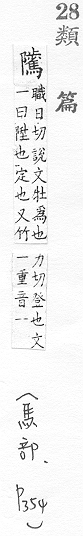 28類篇
騭
職日切說文牡馬也
一曰陞也定也又竹
力切登也文
一重音一
(馬部、P354)